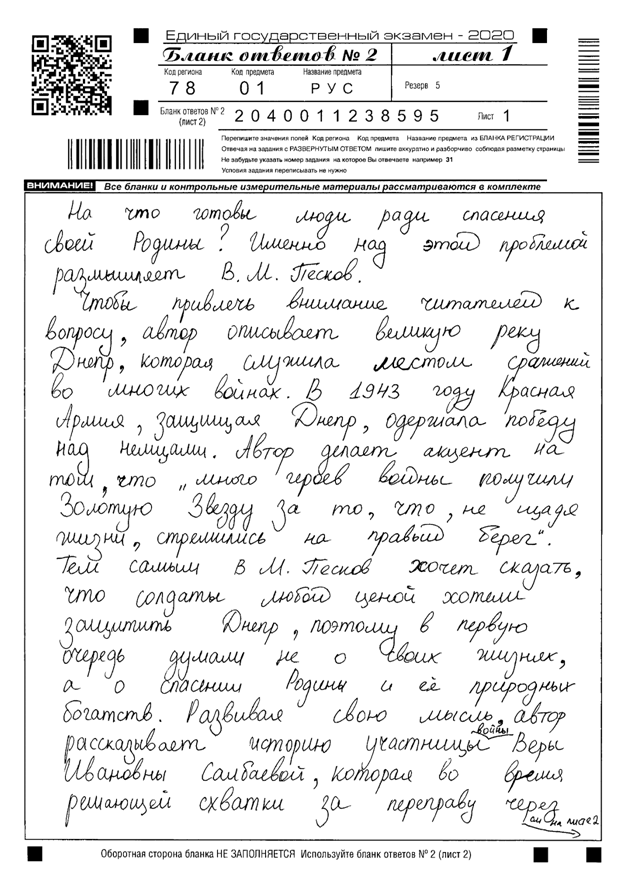 Единый государственный экзамен - 2020
Бланк ответов № 2 лист 1
Код региона Код предмета Название предмета
78 01 РУС Резерв 5
Бланк ответов № 2 (лист 2) 2040011238595 Лист 1
Перепишите значения полей Код региона Код предмета Название предмета из БЛАНКА РЕГИСТРАЦИИ
Отвечая на задания с РАЗВЕРНУТЫМ ОТВЕТОМ пишите аккуратно и разборчиво соблюдая разметку страницы
Не забудьте указать номер задания на которое Вы отвечаете например 31
Условия задания переписывать не нужно
ВНИМАНИЕ! Все бланки и контрольные измерительные материалы рассматриваются в комплекте
На что готовы люди ради спасения
своей Родины? Именно над этой проблемой
размышляет В. М. Песков.
Чтобы привлечь внимание читателей к
вопросу, автор описывает великую реку
Днепр, которая служила местом сражений
во многих войнах. В 1943 году Красная
Армия, защищая Днепр, одержала победу
над немцами. Автор делает акцент на
том, что „много героев войны получили
Золотую Звезду за то, что, не щадя
жизни, стремились на правый берег“.
Тем самым В М. Песков хочет сказать,
что солдаты любой ценой хотели
защитить Днепр, поэтому в первую
очередь думали не о своих жизнях,
а о спасении Родины и её природных
богатств. Развивая свою мысль, автор
рассказывает историю участницы войны Веры
Ивановны Салбаевой, которая во время
решающей схватки за переправу через
см на листе 2
Оборотная сторона бланка НЕ ЗАПОЛНЯЕТСЯ Используйте бланк ответов № 2 (лист 2)